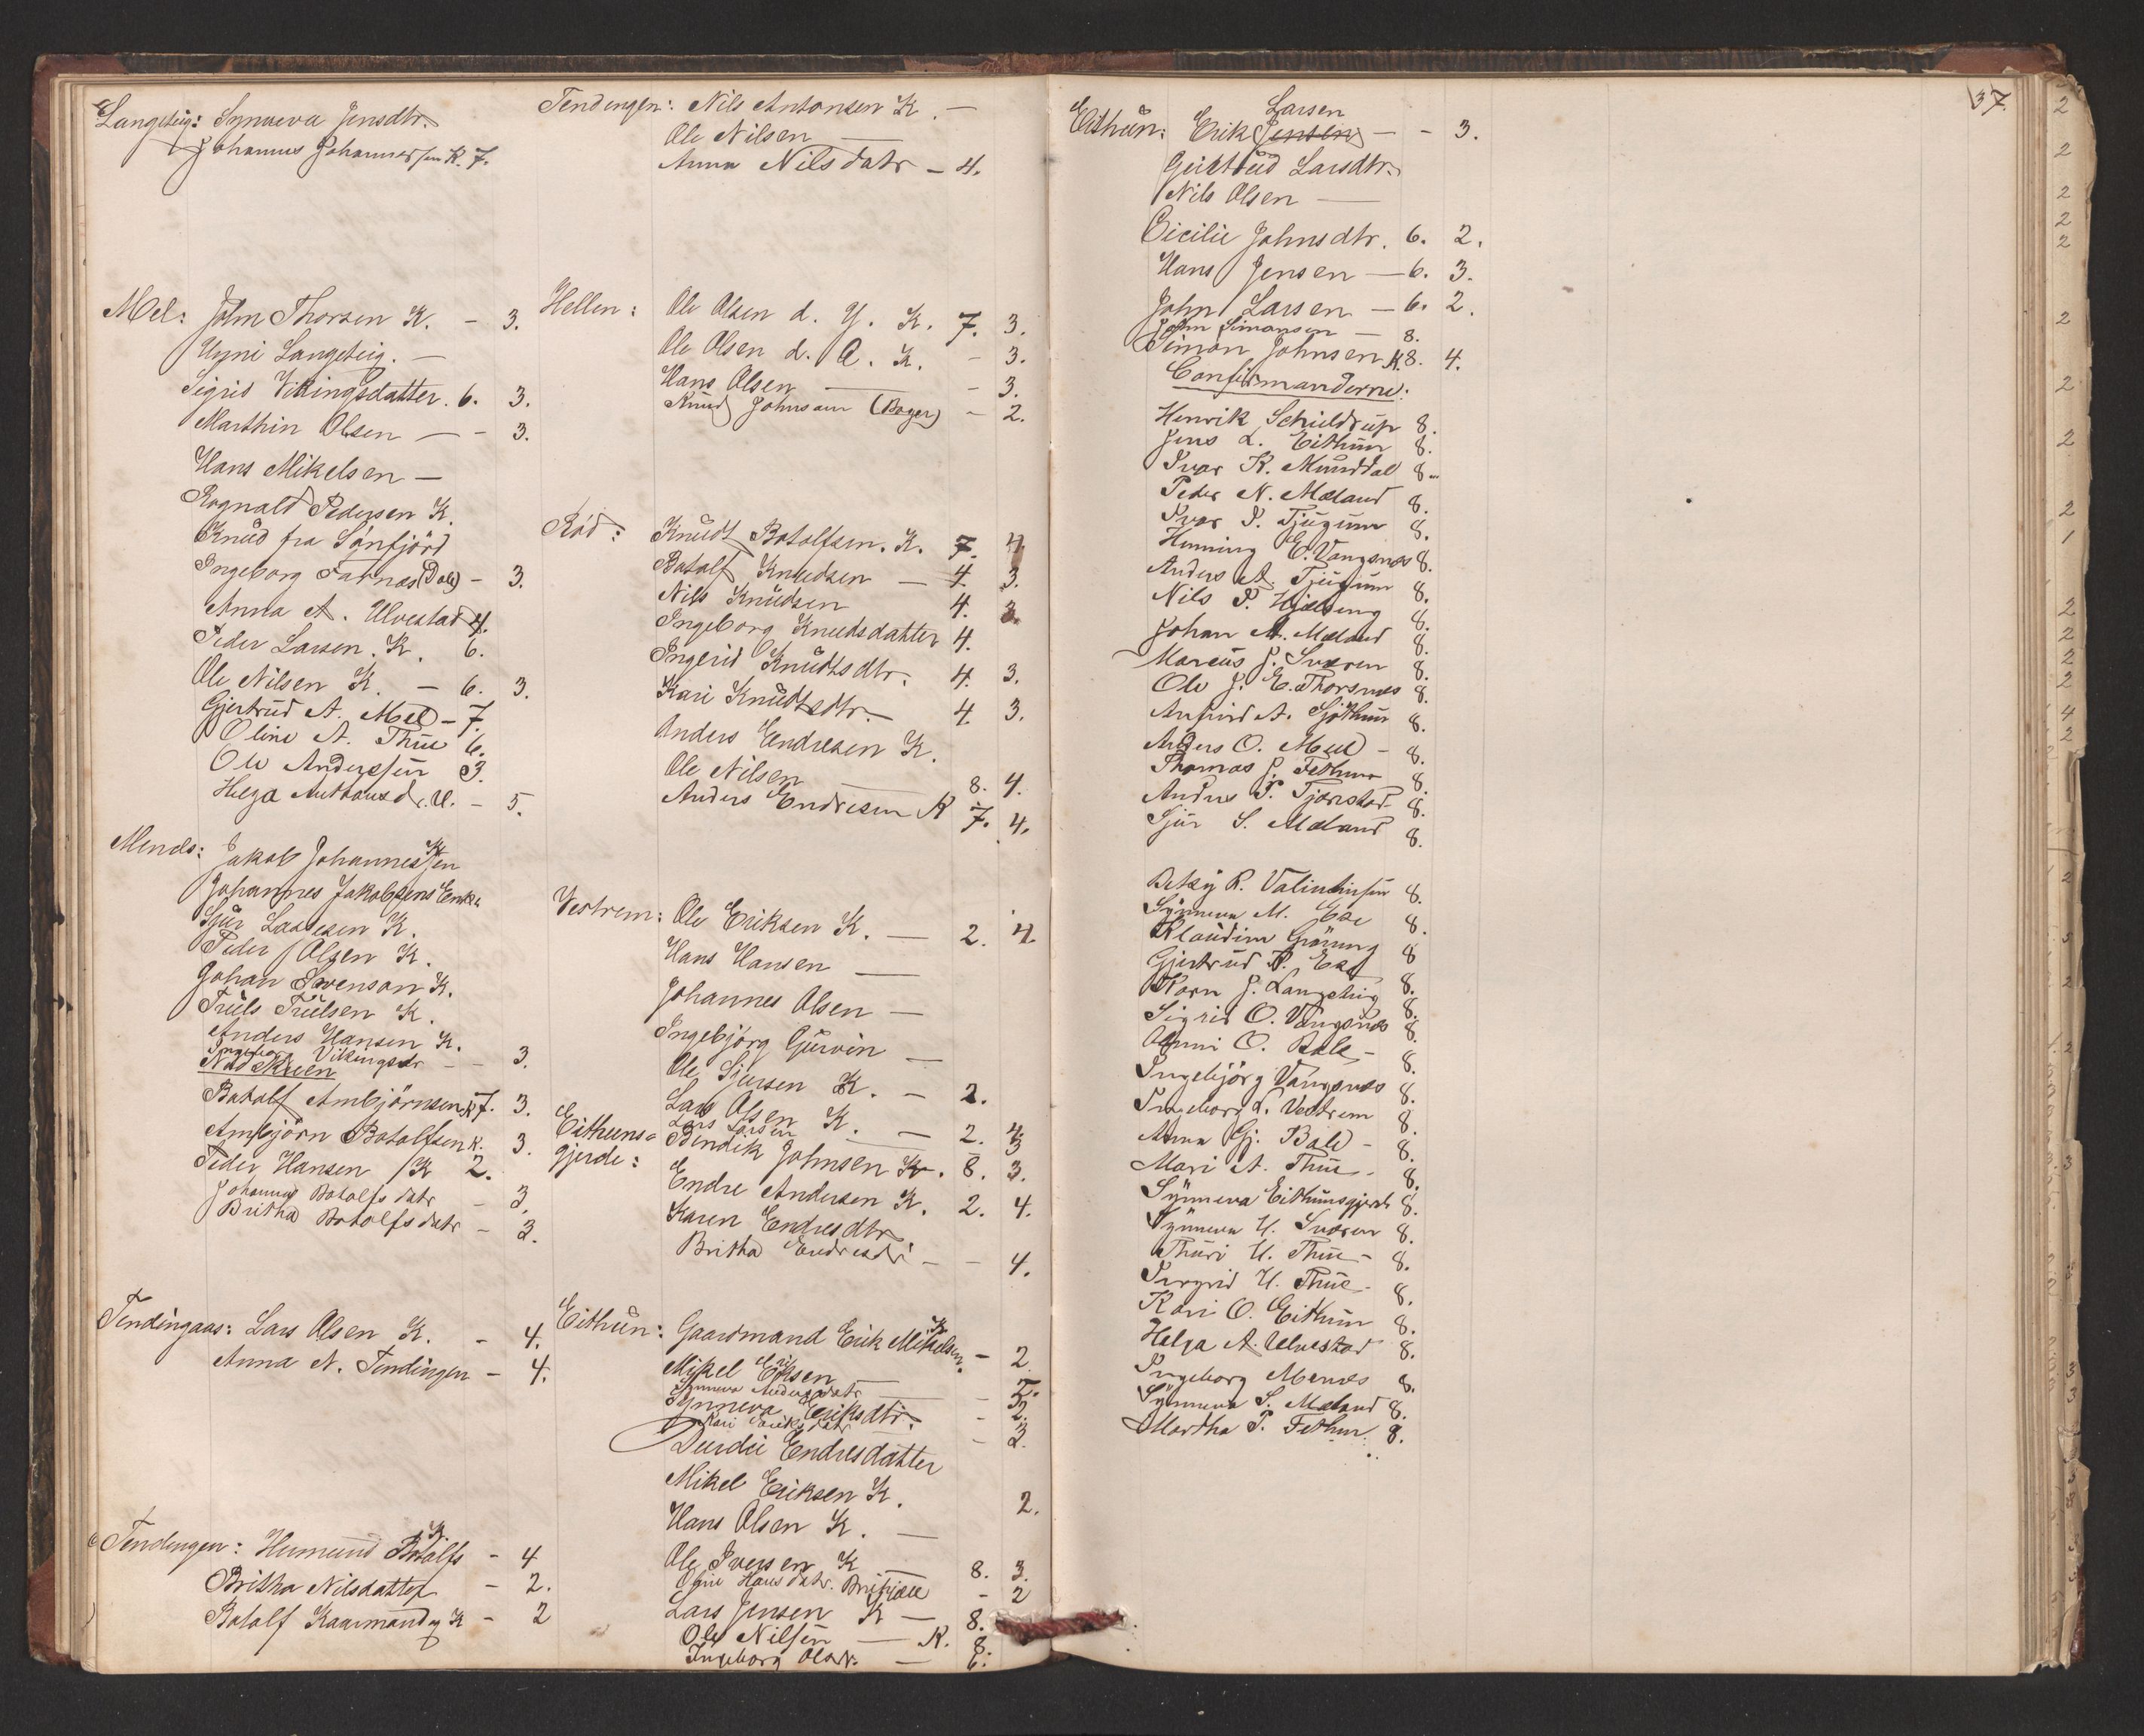 Langeteig: Synneva Jensdtr.
Johannes Johannessen K. 7.
Mel: John Thorsen K. - 3.
Uyni Langeteig. —
Sigrid Vikingsdatter. 6. 3.
Marthin Olsen — - 3.
Hans Mikelsen —
Rognald Pedersen K.
Knud fra Sönfjörd
Ingeborg Farnæs (Dale) - 3.
Anna A. Ulvestad 4.
Peder Larsen. K. 6.
Ole Nilsen K. - 6. 3.
Gjertrud A. Mel - 7.
Oline A. Thue 6.
Ole Anderssen 3.
Helga Anthonsdr. U. - 5.
Menes: Jakob Johannessen K
Johannes Jakobsens Enke
Sjur Lassesen K.
Peder Olsen K.
Johan Svenson K.
Truls Trulsen K.
Anders Hansen K.
Ingeborg Vikingsdr - - 3.
Nodskuen
Botolf Ambjörnsen K 7. 3.
Ambjörn Botolfsen K. 3.
Peder Hansen K 2.
Johanna Botolfsdatr - 3.
Britha Botolfsdatr - 3.
Tendingaas: Lars Olsen K. - 4.
Anna N. Tendingen - 4.
Tendingen: Hermund Botolfs K. - 4
Britha Nilsdatter - 2.
Botolf Kaarmand K - 2
Tendingen: Nils Antonsen K. —
Ole Nilsen —
Anna Nilsdatr - 4.
Hellen: Ole Olsen d. Y. K. 7. 3.
Ole Olsen d. A. K. - 3.
Hans Olsen — - 3.
Knud Johnsen (Bager) - 2.
Röd: Knudt Botolfsen. K. 7. 4.
Botolf Knudsen — 4. 3.
Nils Knudsen 4. 3.
Ingeborg Knudsdatter 4.
Ingerid Knudtsdtr. 4. 3.
Kari Knudtsdtr. — 4. 3.
Anders Endresen K.
Ole Nilsen — 8. 4.
Anders Endresen K 7. 4.
Vestrem: Ole Eriksen K. — 2. 4.
Hans Hansen —
Johannes Olsen —
Ingebjörg Gurvin —
Ole Sjursen K. - 2.
Lars Olsen K. — 2. 4.
Lars Larsen 3
Eithuns-gjerde: Bendik Johnsen K. 8. 3.
Endre Andersen K. 2. 4.
Karen Endresdtr.
Britha Endresdr - - 4.
Eithun: Gaardmand Erik Mikelsen K. - 2.
Mikel Eriksen — - 2.
Synneva Andersdatr — 3.
Synneva Eriksdtr. - 2.
Kari Eriksdatr — - 3.
Durdei Endresdatter
Mikel Eriksen K. 2.
Hans Olsen K. —
Ole Iversen K — 8. 3.
Hansdatr. - 2
Lars Jensen K — 8.
Ole Nilsen — K. 8.
Ingeborg Olsdr. — 6.
37.
Eithun: Erik Jensen Larsen - - 3.
Gjertrud Larsdtr.
Nils Olsen —
Cicilie Johnsdtr. 6. 2.
Hans Jensen — 6. 3.
John Larsen — 6. 2.
John Simonsen — 8.
Simon Johnsen K. 8. 4.
Confirmanderne:
Henrik Schieldrup 8.
Jens L. Eithun 8.
Ivar K. Munddal 8.
Peder N. Mæland 8.
Ivar P. Tjugum 8.
Henning E. Vangsnæs 8.
Anders A. Tjugum 8.
Nils P. Hjelseng 8.
Johan A. Mæland 8.
Marcus J. Sværen 8.
Ole J. E. Thorsnæs 8.
Anfind A. Sjöthun 8.
Anders O. Mæl - 8.
Thomas J. Fethun 8.
Andres P. Tjönstad 8.
Sjur S. Mæland 8.
Betsy R. Valentinsen 8.
Synneva M. Ese 8.
Klaudine Gröning 8
Gjertrud P. Ese 8.
Karn J. Langeteig 8.
Sigrid O. Vangsnes 8.
O. Bale - 8.
Ingebjörg Vangsnæs 8.
Ingeborg L. Vestrem 8.
Anna Gj. Bale - 8.
Mari A. Thue - 8.
Synneva Eithunsgjerde 8.
Synneva H. Sværen 8.
Thuri H. Thue - 8.
Ingrid H. Thue - 8.
Kari O. Eithun 8.
Helga A. Ulvestad 8.
Ingeborg Menæs 8.
Synneva S. Mæland 8.
Martha P. Fethun. 8.